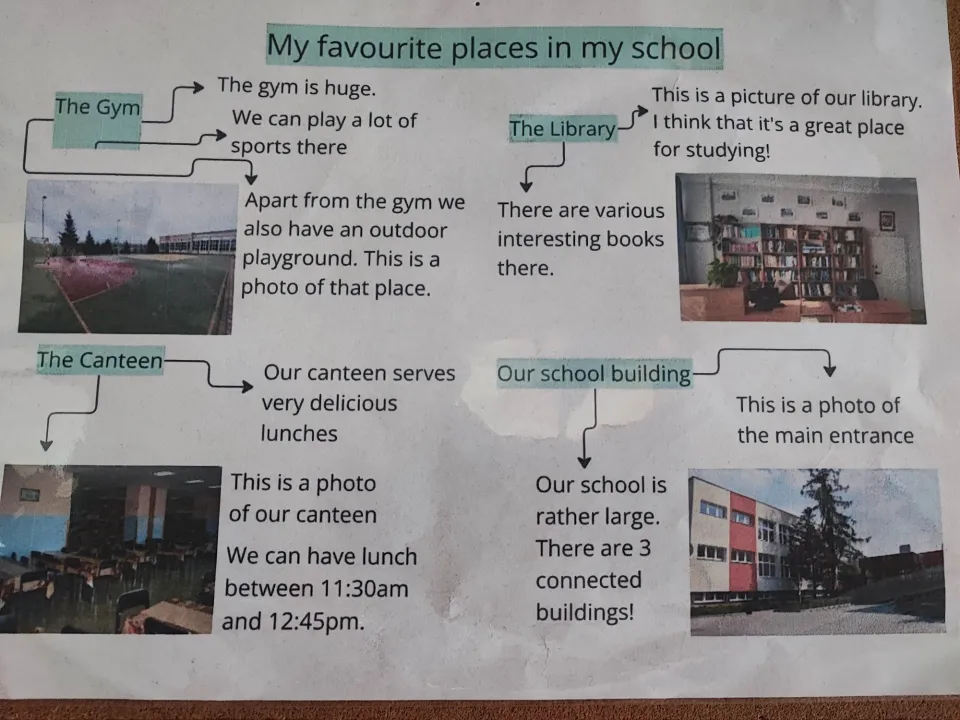 My favourite places in my school
The Gym
The gym is huge.
We can play a lot of
sports there
Apart from the gym we
also have an outdoor
playground. This is a
photo of that place.
The Library
This is a picture of our library.
I think that it's a great place
for studying!
There are various
interesting books
there.
The Canteen
Our canteen serves
very delicious
lunches
This is a photo
of our canteen
We can have lunch
between 11:30am
and 12:45pm.
Our school building
This is a photo of
the main entrance
Our school is
rather large.
There are 3
connected
buildings!